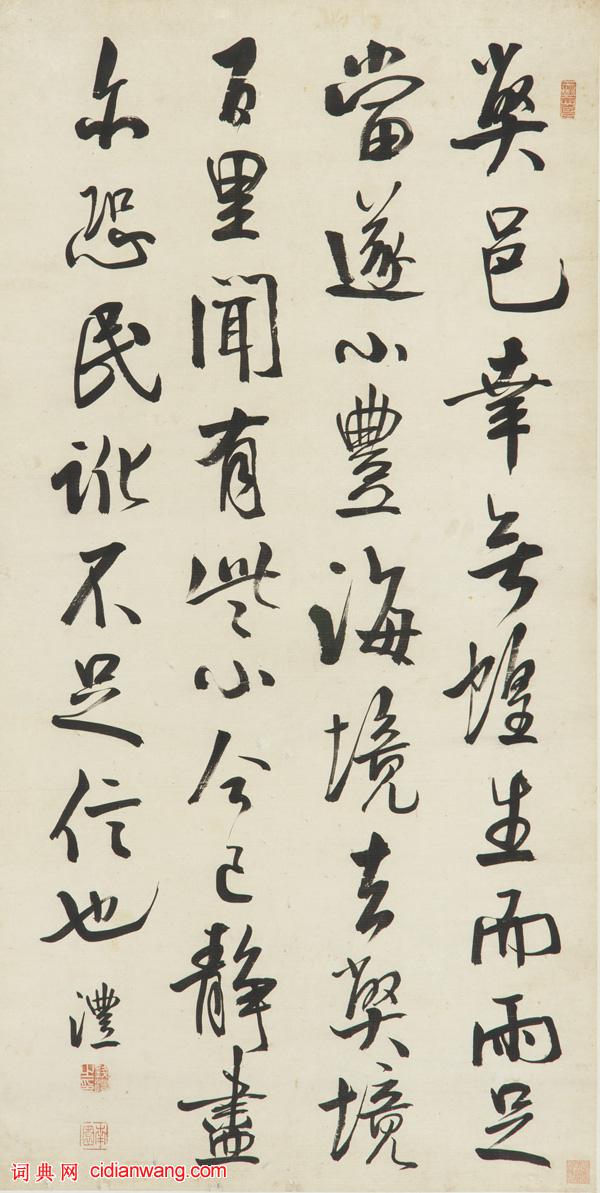 獘邑幸無蝗生而雨足
當遂小豐海境去獘境
百里聞有些小今已静盡
尓恐民訛不足信也
澧
词典网 cidianwang.com